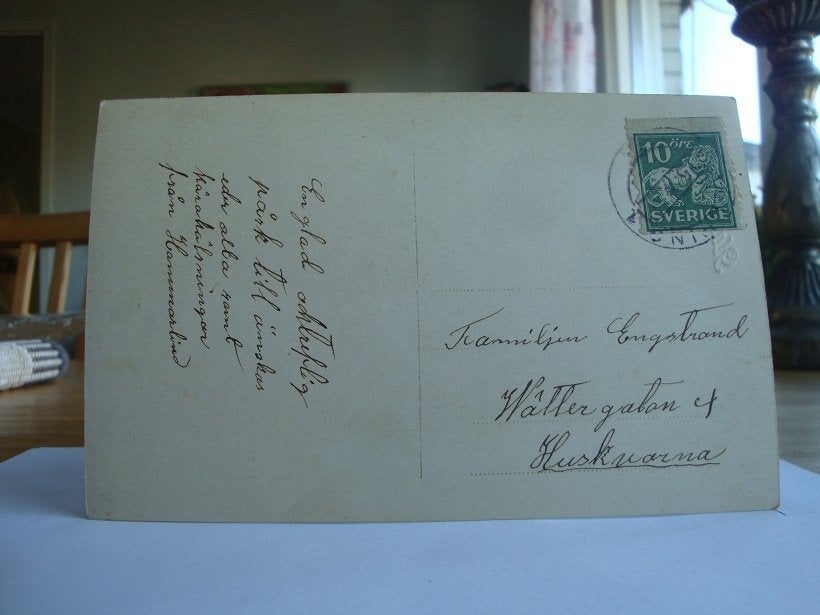 En glad och treflig
påsk till önskas
eder alla samt
kära hälsningar
från Hammarlund
10 ÖRE
SVERIGE
Familjen Engstrand
Wättergatan 4
Huskvarna